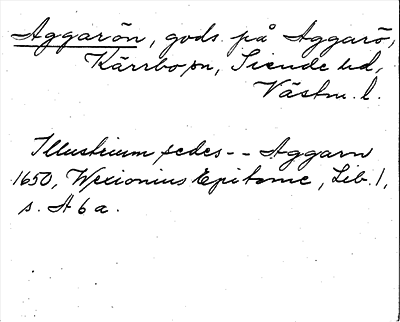 Aggarön, gods på Aggarö,
Kärrbo sn, Siende hd,
Västm. l.
Illustrium sedes -- Aggarn
1650, Wexionius Epitome, Lib. 1,
s. A 6 a.